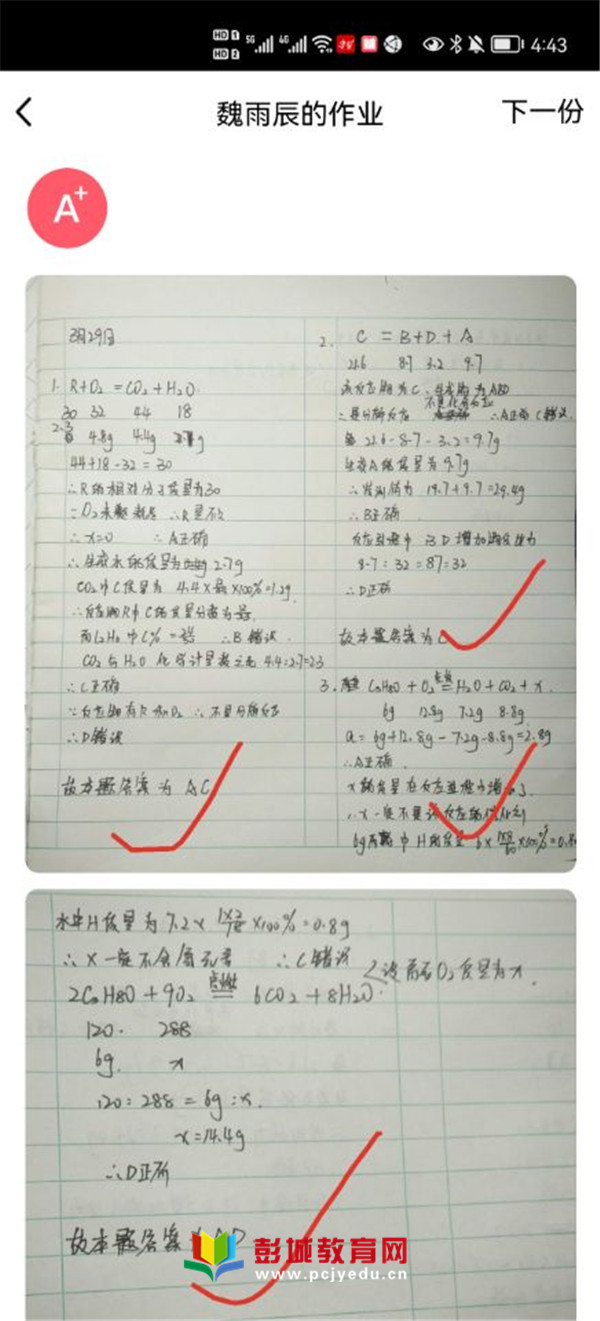 HD 1 5G 4G 4:43
HD 2
魏雨辰的作业
下一份
A+
3月29日
1. R+O2 = CO2+H2O.
30 32 44 18
2.3 4.8g 4.4g 2.7g
44+18-32=30
∴R的相对分子质量为30
∴x=0 ∴A正确
∴生成水的质量为 2.7g
CO2中C质量为 4.4× ×100%=1.2g
∴反应物R中C的质量分数为
∴B错误
CO2与H2O化学计量数之比 4.4:2.7=2:3
∴C正确
∵反应物有R和O2 ∴不是分解反应
∴D错误
故本题答案为 AC
2. C = B+D+A
21.6 8.7 3.2 9.7
该反应物为C，生成物为ABD
∴是分解反应 ∴A正确 C错误
21.6-8.7-3.2=9.7g
生成A的质量为9.7g
∴ 19.7+9.7=29.4g
∴B正确
反应过程中 B D 增加
8.7:3.2=87:32
∴D正确
故本题答案为C
3. C3H8O+O2 点燃= H2O+CO2+x.
6g 12.8g 7.2g 8.8g
a=6g+12.8g-7.2g-8.8g=2.8g
∴A正确
x的质量在反应过程中增加了
∴x一定不是该反应的催化剂
6g 中H的质量 6× 1×8/60 ×100%=0.8
水中H质量为7.2× 1×2/18 ×100%=0.8g
∴X一定不含氢元素 ∴C错误
<设需要O2质量为x.
2C3H8O+9O2 点燃= 6CO2+8H2O
120. 288
6g. x
120:288=6g:x.
x=14.4g
∴D正确
故本题答案为AD
彭城教育网
www.pcjyedu.cn